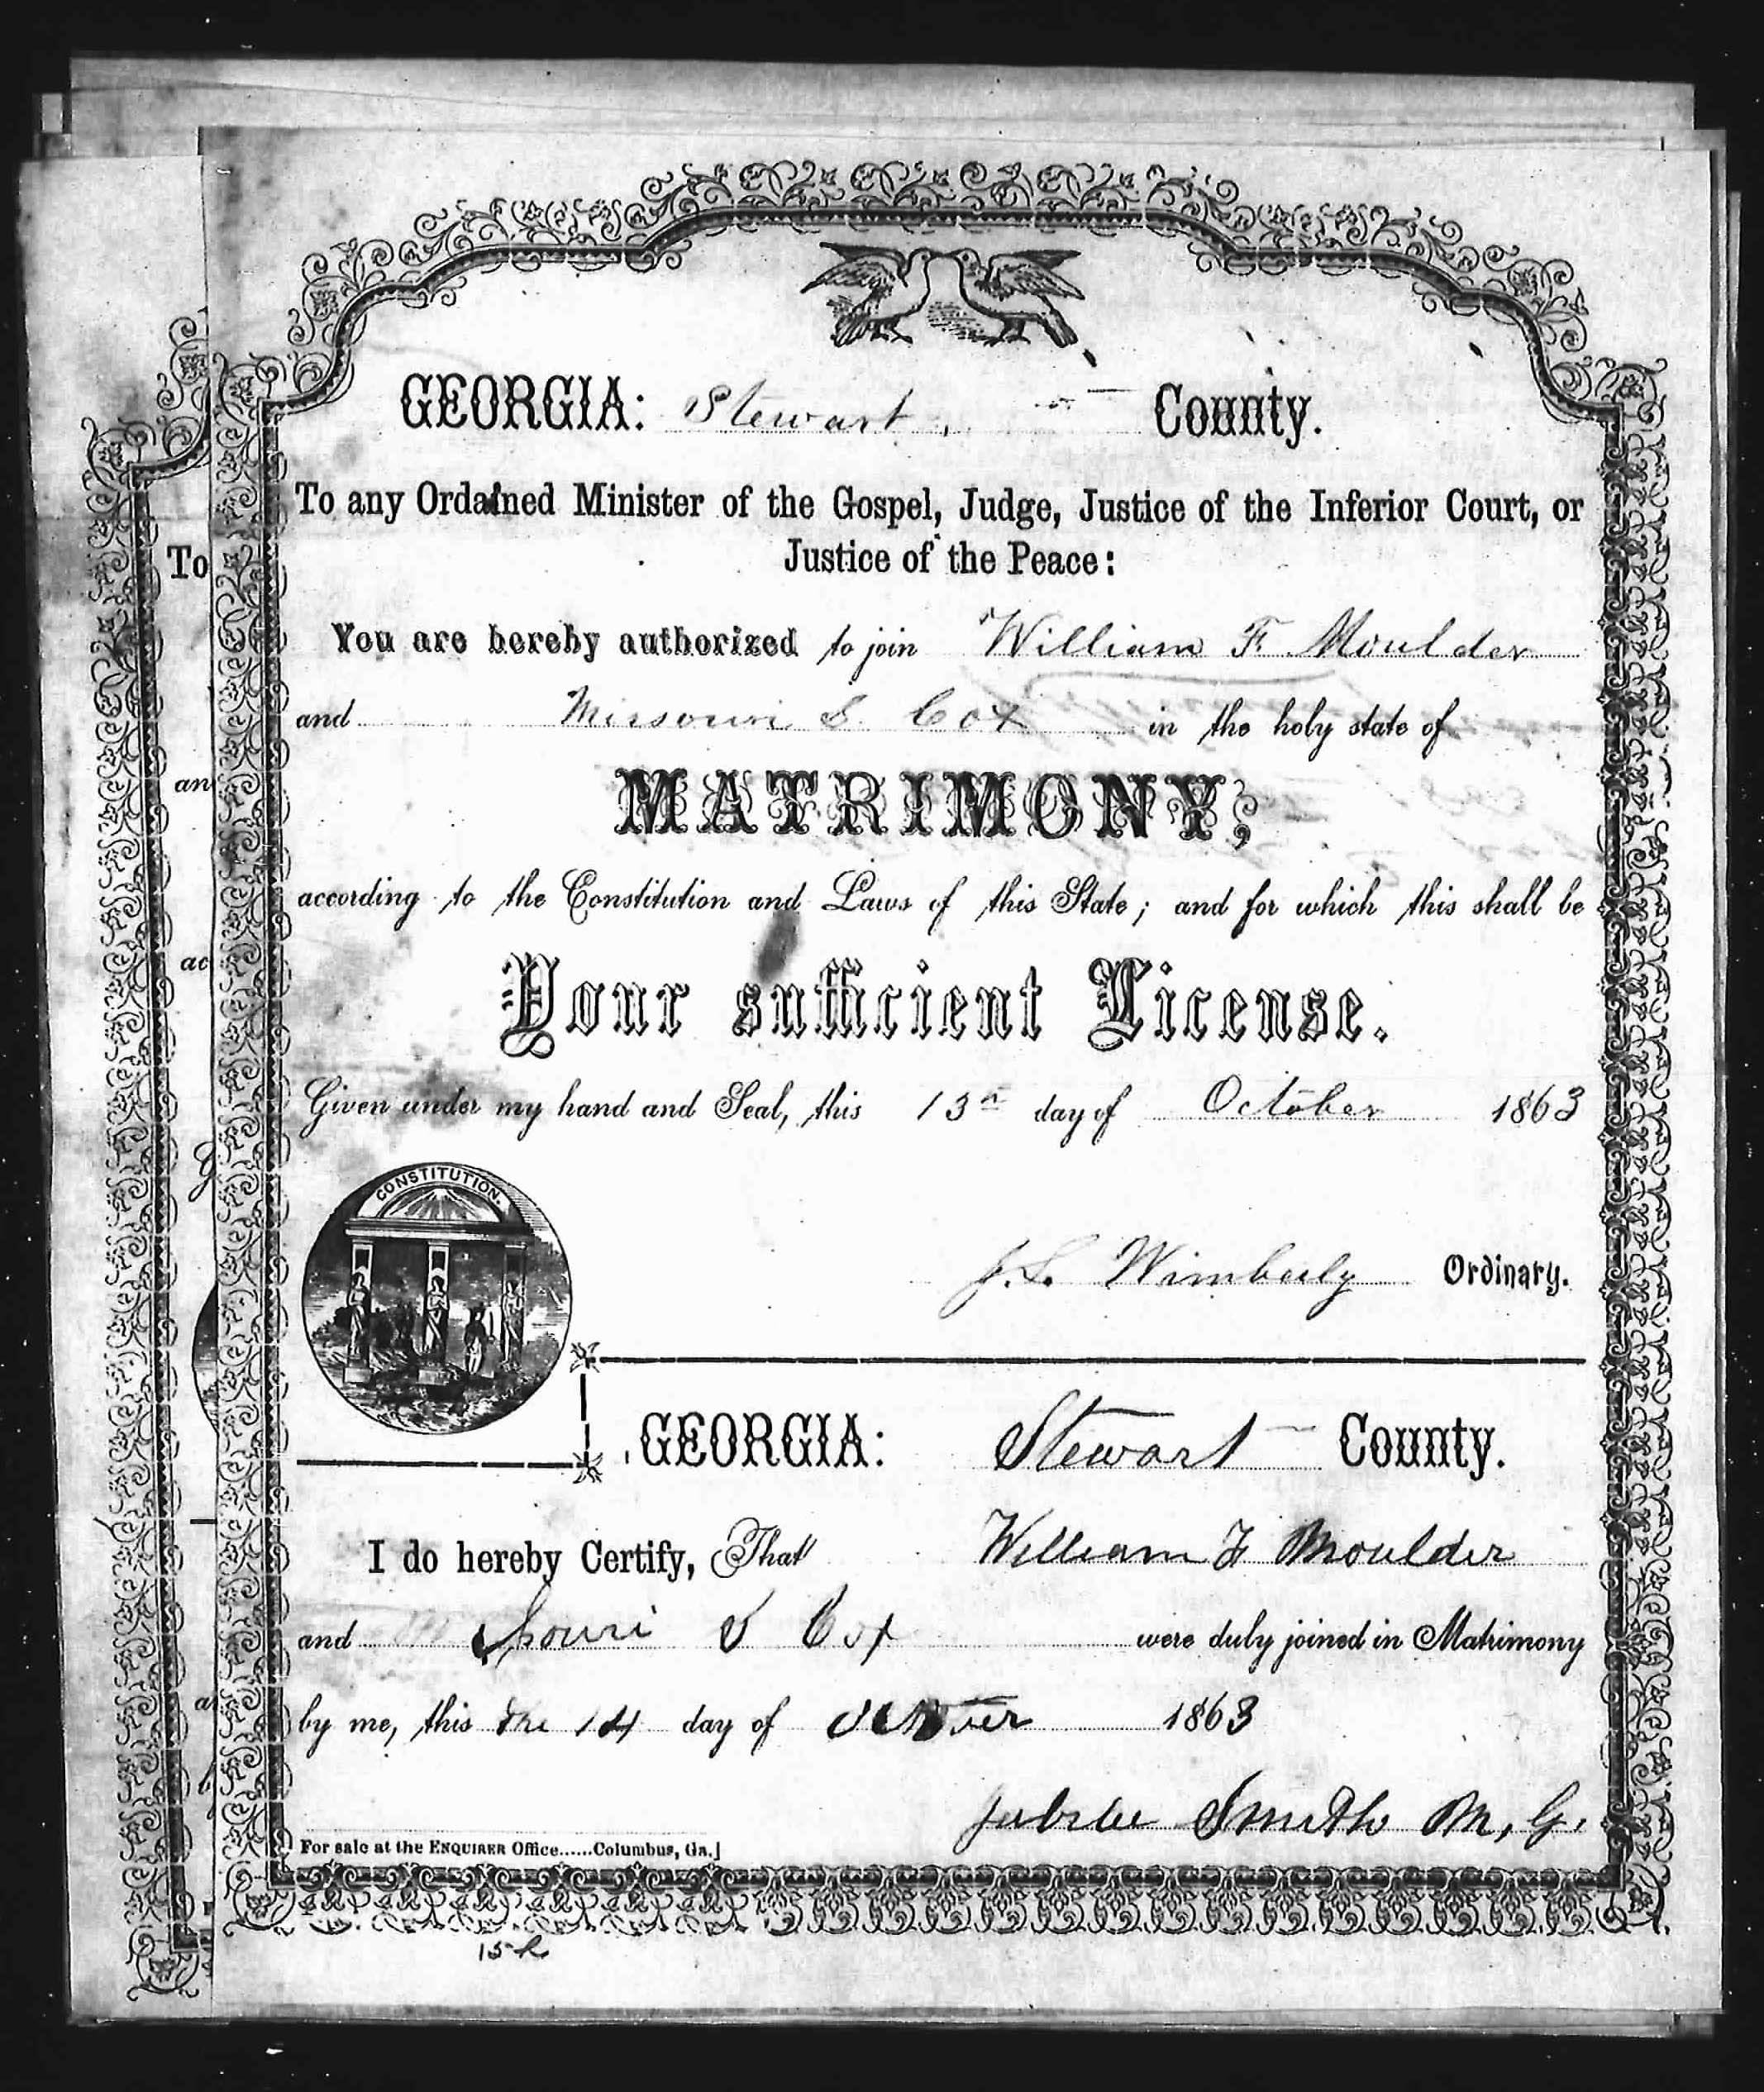 GEORGIA: Stewart County.
To any Ordained Minister of the Gospel, Judge, Justice of the Inferior Court, or
Justice of the Peace:
You are hereby authorized to join William F. Moulder
and Missouri S. Cox in the holy state of
MATRIMONY;
according to the Constitution and Laws of this State; and for which this shall be
Your sufficient License.
Given under my hand and Seal, this 13th day of October 1863
CONSTITUTION.
J. L. Wimberly Ordinary.
GEORGIA: Stewart County.
I do hereby Certify, That William F Moulder
and S Cox were duly joined in Matrimony
by me, this the 14 day of October 1863
Smith M, G.
For sale at the ENQUIRER Office......Columbus, Ga.]
To
an
ac
G
a
b